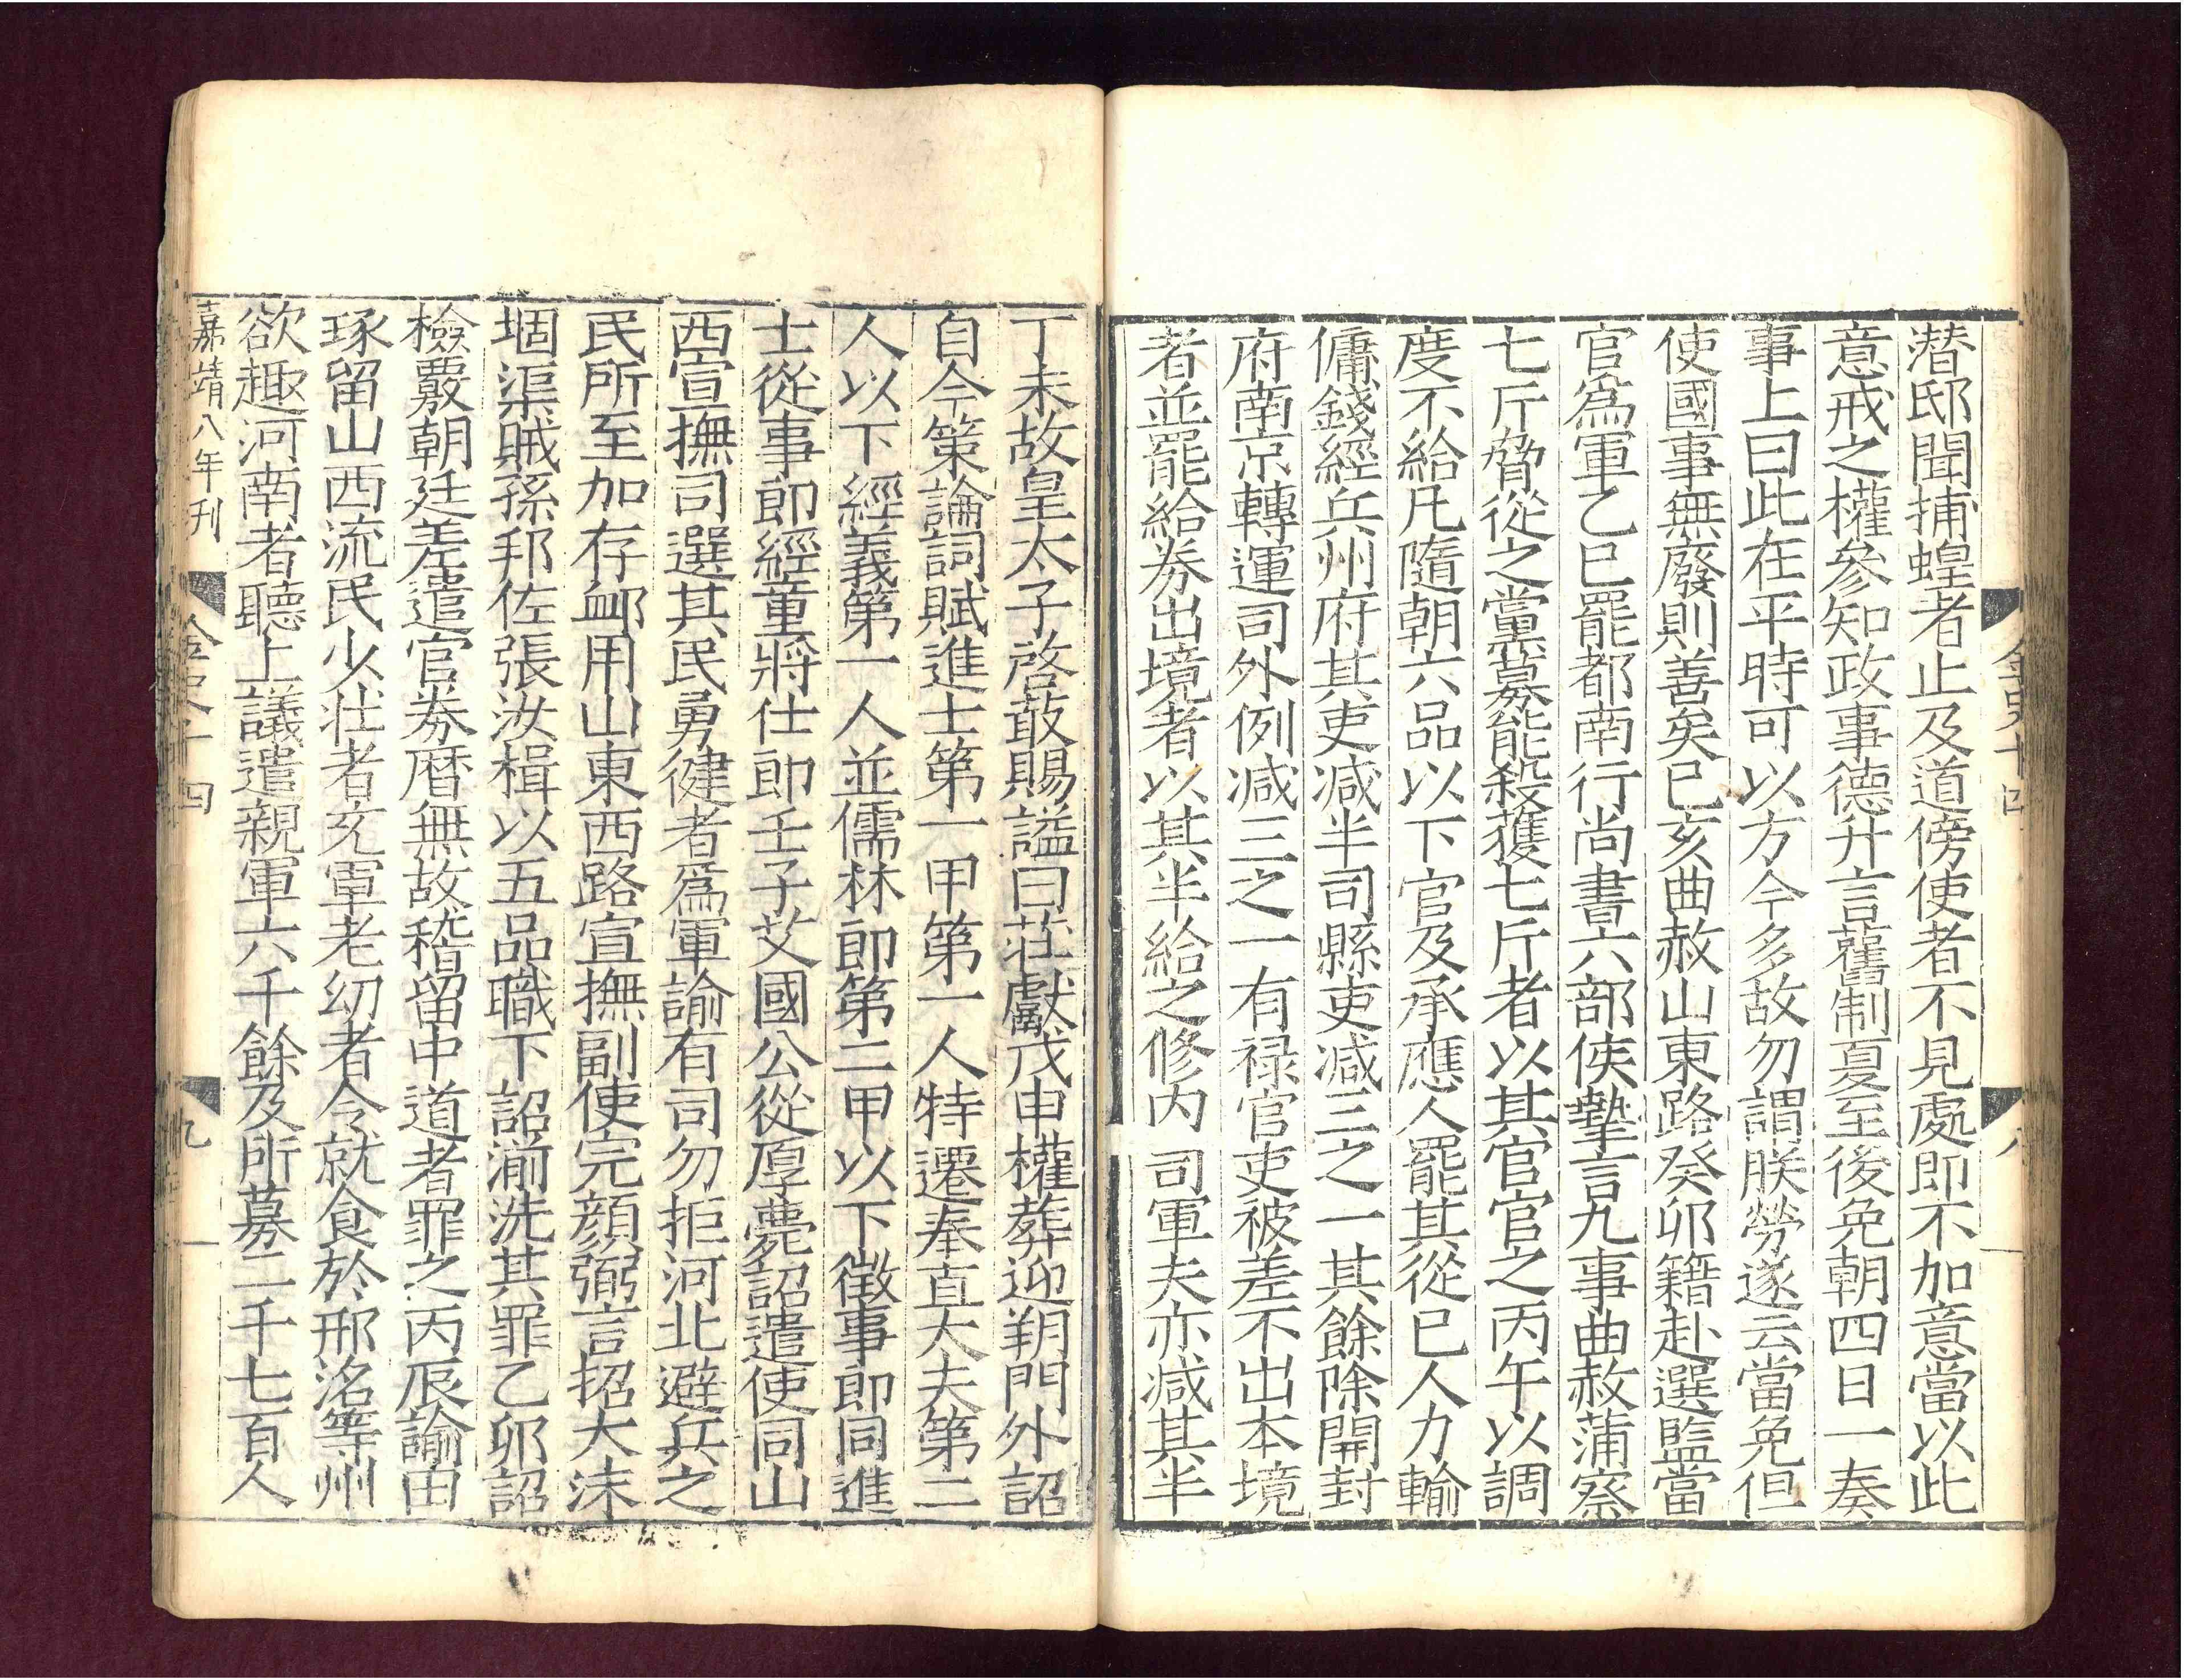 潜邸聞捕蝗者止及道傍使者不見處即不加意當以此
意戒之權參知政事德升言舊制夏至後免朝四日一奏
事上曰此在平時可以方今多故勿謂朕勞遂云當免但
使國事無廢則善矣己亥曲赦山東路癸卯籍赴選監當
官爲軍乙巳罷都南行尚書六部侯摯言九事曲赦蒲察
七斤脅從之黨募能殺獲七斤者以其官官之丙午以調
度不給凡隨朝六品以下官及承應人罷其從已人力輸
傭錢經兵州府其吏减半司縣吏减三之一其餘除開封
府南京轉運司外例减三之一有禄官吏被差不出本境
者並罷給券出境者以其半給之修内司軍夫亦减其半
金史十四
八
丁未故皇太子啓菆賜謚曰莊獻戊申權葬迎朔門外詔
自今策論詞賦進士第一甲第一人特遷奉直大夫第二
人以下經義第一人並儒林郎第二甲以下徵事郎同進
士從事郎經童將仕郎壬子艾國公從厚薨詔遣使同山
西宣撫司選其民勇健者爲軍諭有司勿拒河北避兵之
民所至加存䘏用山東西路宣撫副使完顔弼言招大沫
堌渠賊孫邦佐張汝楫以五品職下詔湔洗其罪乙卯詔
檢覈朝廷差遣官券曆無故稽留中道者罪之丙辰諭田
琢留山西流民少壯者充軍老幼者令就食於邢洺等州
欲趣河南者聽上議遣親軍六千餘及所募二千七百人
嘉靖八年刊
金史十四
九